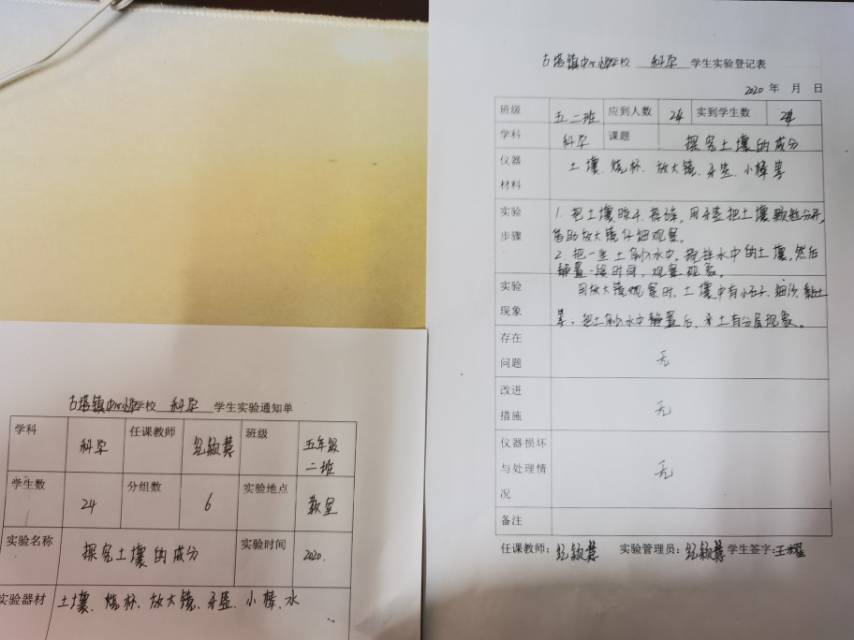 古塔镇中心小学校 科学 学生实验通知单
学科 科学 任课教师 班级 五年级二班
学生数 24 分组数 6 实验地点 教室
实验名称 探究土壤的成分 实验时间 2020.
实验器材 土壤、烧杯、放大镜、牙签、小棒、水
古塔镇中心小学校 科学 学生实验登记表
2020 年 月 日
班级 五.二班 应到人数 24 实到学生数 24
学科 科学 课题 探究土壤的成分
仪器材料 土壤、烧杯、放大镜、牙签、小棒等
实验步骤 1. 把土壤晾干、捣碎,用牙签把土壤颗粒分开,
借助放大镜仔细观察。
2. 把一些土倒入水中,搅拌水中的土壤,然后
静置一段时间,观察现象。
实验现象 用放大镜观察时,土壤中有小石子、细沙、黏土
等。把土倒入水中静置后,水土有分层现象。
存在问题 无
改进措施 无
仪器损坏与处理情况 无
备注
任课教师: 实验管理员: 学生签字: